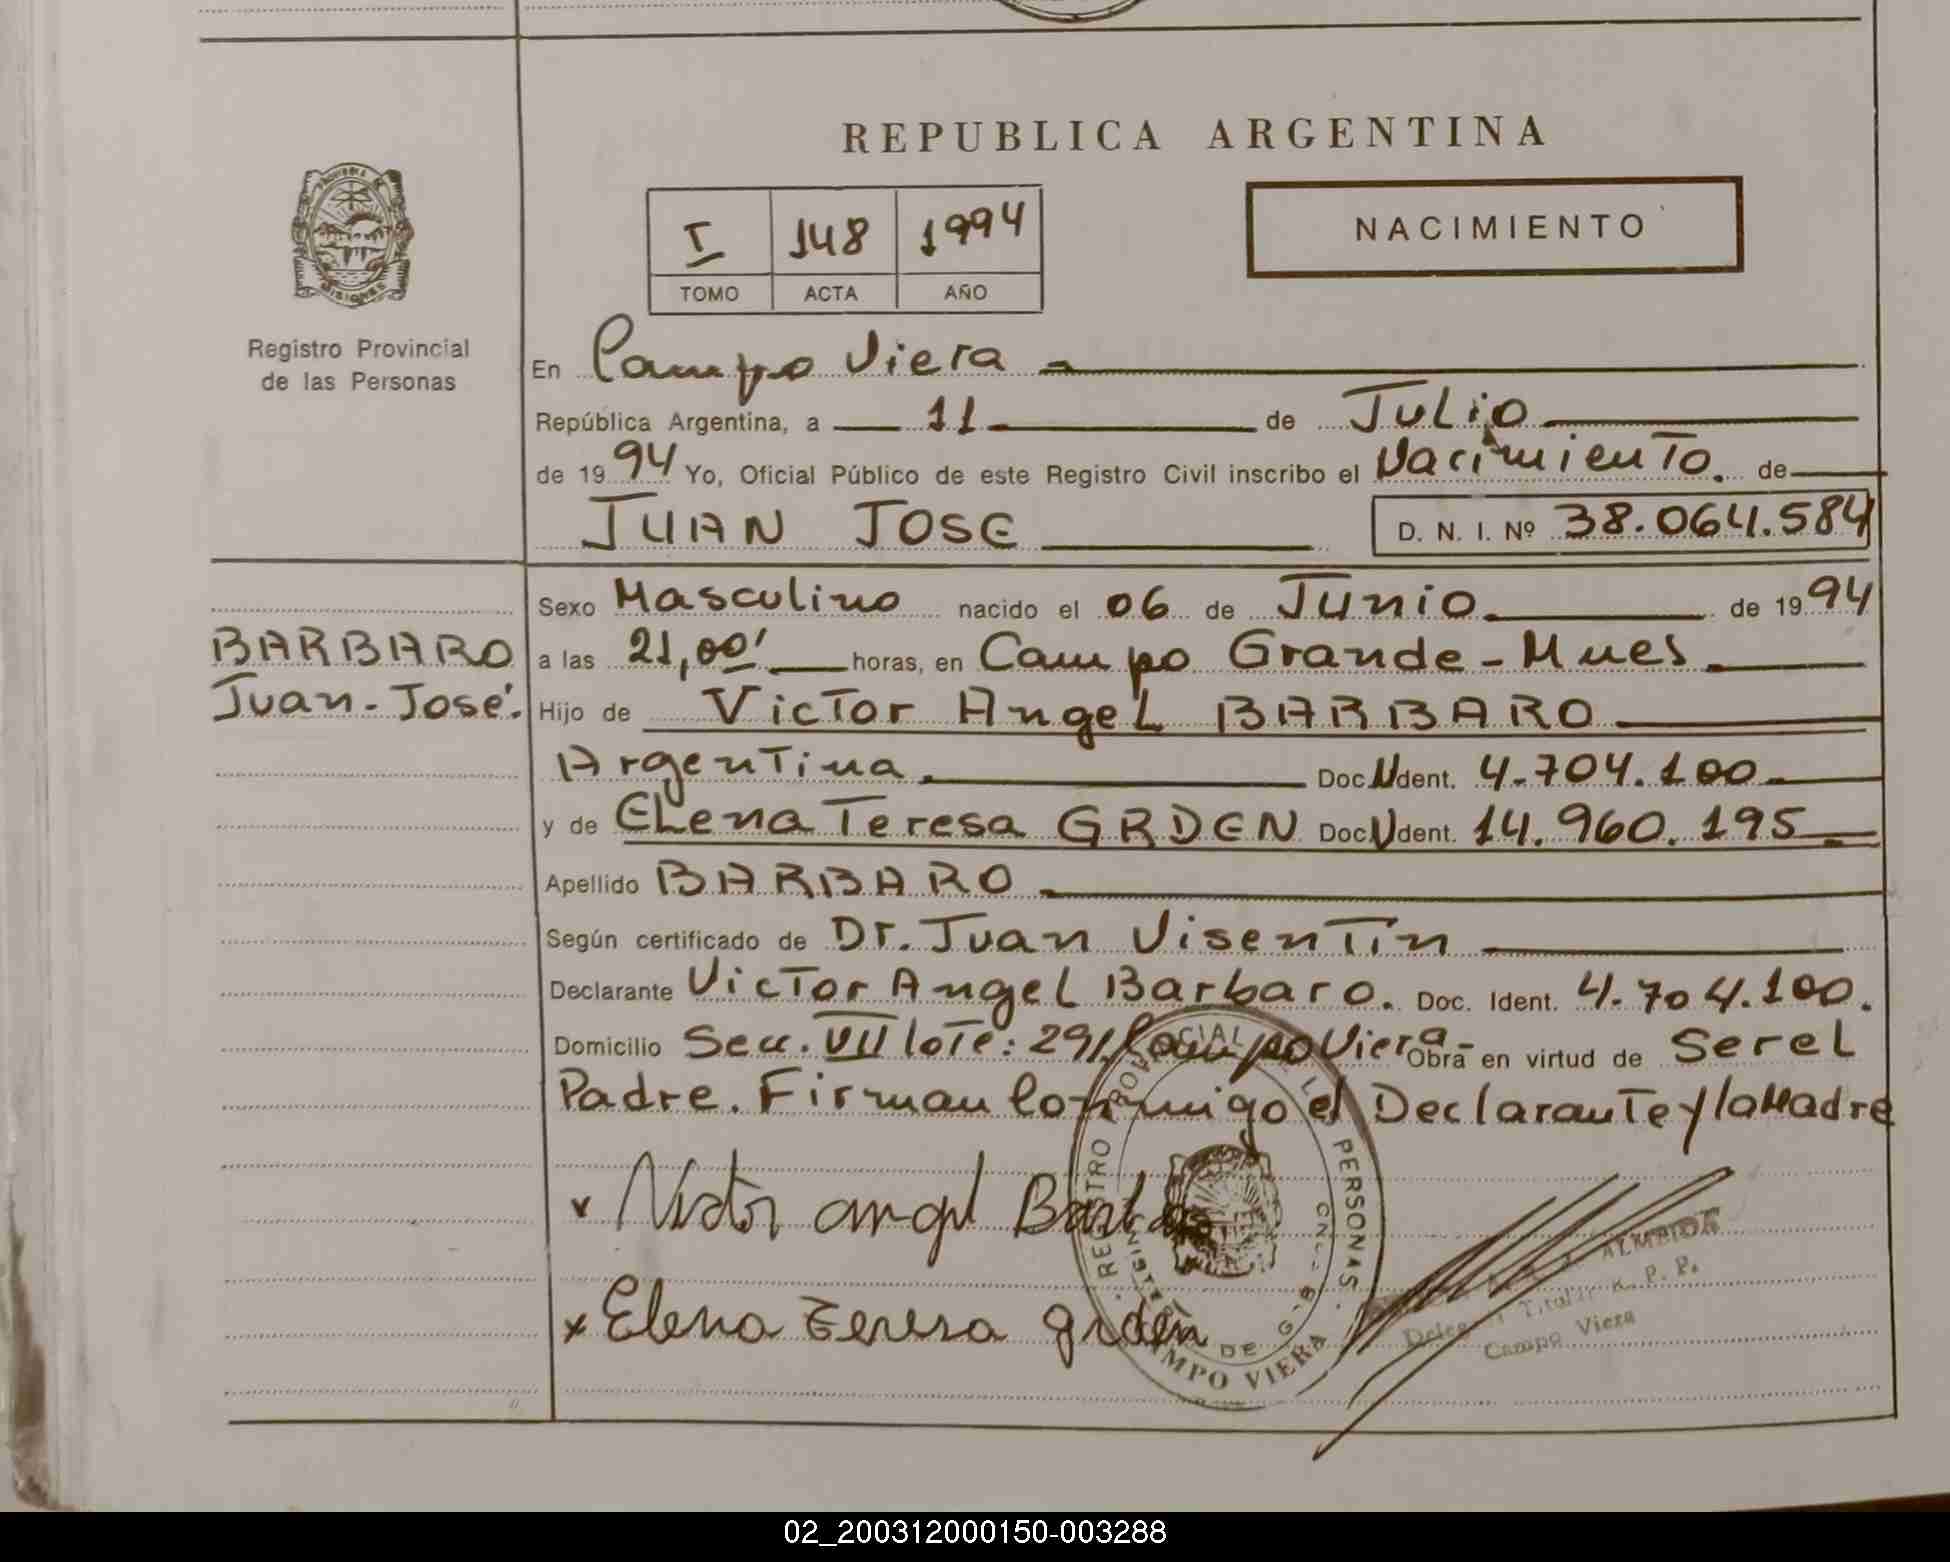 REPUBLICA ARGENTINA
NACIMIENTO
I 148 1994
TOMO ACTA AÑO
Registro Provincial
de las Personas
En Campo Viera
República Argentina, a 11 de Julio
de 1994 Yo, Oficial Público de este Registro Civil inscribo el Nacimiento. de
JUAN JOSE D. N. I. Nº 38.064.584
BARBARO
Juan-José.
Sexo Masculino nacido el 06 de Junio de 1994
a las 21,00' horas, en Campo Grande-Mnes
Hijo de Victor Angel BARBARO
Argentina Doc. Ident. 4.704.100
y de Elena Teresa GRDEN Doc. Ident. 14.960.195
Apellido BARBARO
Según certificado de Dr. Juan Visentin
Declarante Victor Angel Barbaro. Doc. Ident. 4.704.100.
Domicilio Secc. VII lote: 291 Campo Viera- Obra en virtud de Ser el
Padre. Firman Conmigo el Declarante y la Madre
x Victor angel Barbaro
x Elena Teresa grden
REGISTRO PROVINCIAL DE LAS PERSONAS
CAMPO VIERA
ALMEIDA
Titular R. P. P.
Campo Viera
02_200312000150-003288